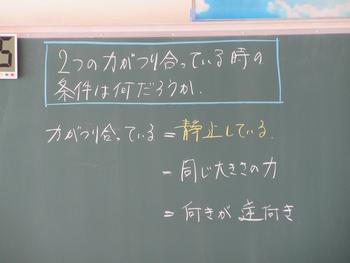 2つの力がつり合っている時の
条件は何だろうか.
力がつり合っている = 静止している.
= 同じ大きさの力
= 向きが 逆向き